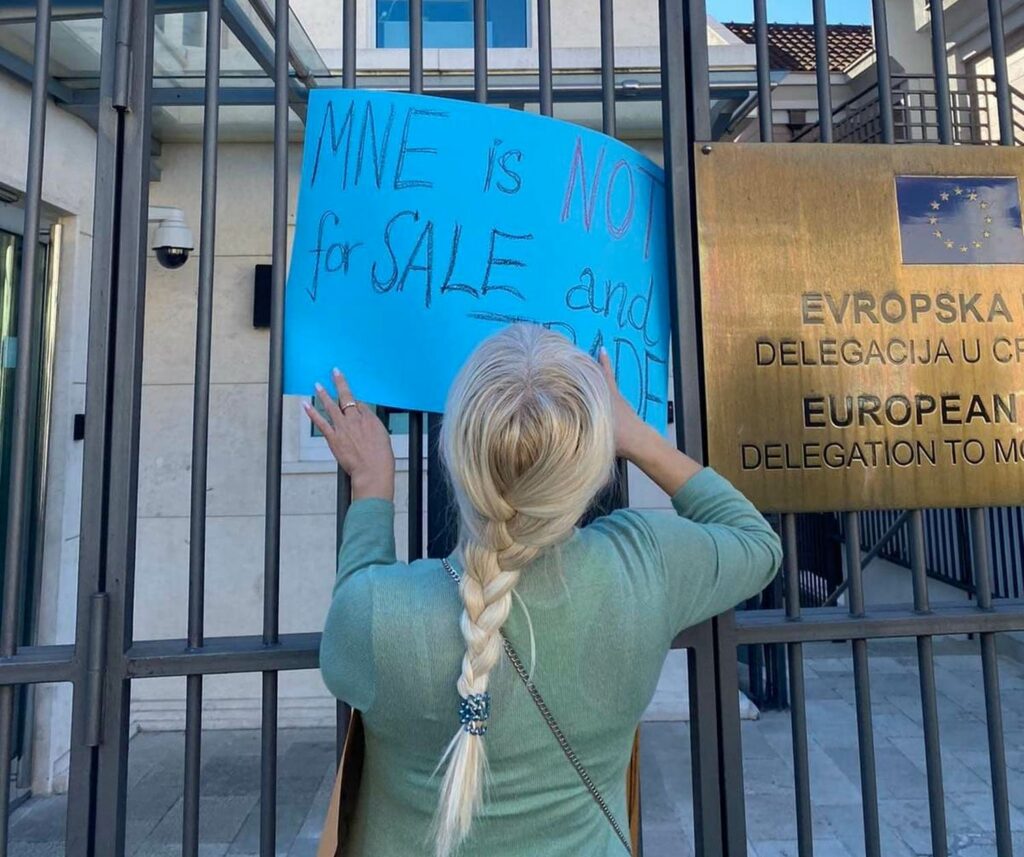 MNE is NOT
for SALE and
TRADE
EVROPSKA
DELEGACIJA U
EUROPEAN
DELEGATION TO